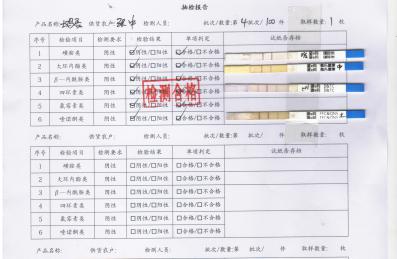 抽检报告
产品名称: 供货农户: 检测人员: 批次/数量:第4批次/100件 取样数量:1枚
序号 检测项目 检测要求 检验结果 单项判定 试纸条存档
1 磺胺类 阴性 ☑阴性/☐阳性 ☑合格/☐不合格
2 大环内酯类 阴性 ☑阴性/☐阳性 ☑合格/☐不合格
3 β-内酰胺类 阴性 ☑阴性/☐阳性 ☑合格/☐不合格
4 四环素类 阴性 ☑阴性/☐阳性 ☑合格/☐不合格
5 氟苯尼类 阴性 ☑阴性/☐阳性 ☑合格/☐不合格
6 喹诺酮类 阴性 ☑阴性/☐阳性 ☑合格/☐不合格
检测合格
产品名称: 供货农户: 检测人员: 批次/数量:第 批次/ 件 取样数量: 枚
序号 检测项目 检测要求 检验结果 单项判定 试纸条存档
1 磺胺类 阴性 ☐阴性/☐阳性 ☐合格/☐不合格
2 大环内酯类 阴性 ☐阴性/☐阳性 ☐合格/☐不合格
3 β-内酰胺类 阴性 ☐阴性/☐阳性 ☐合格/☐不合格
4 四环素类 阴性 ☐阴性/☐阳性 ☐合格/☐不合格
5 阴性 ☐阴性/☐阳性 ☐合格/☐不合格
6 喹诺酮类 阴性 ☐阴性/☐阳性 ☐合格/☐不合格
产品名称: 供货农户: 检测人员: 批次/数量:第 批次/ 件 取样数量: 枚